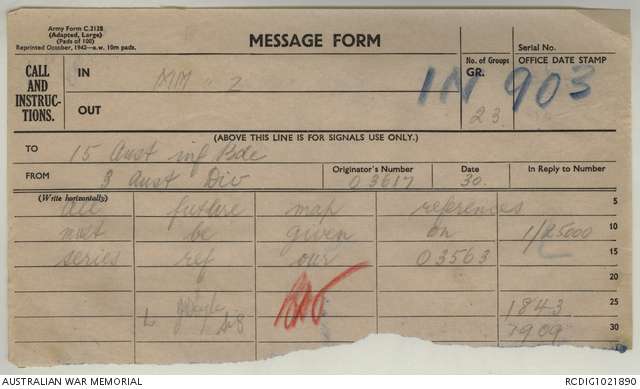 Army Form C.2128
(Adapted, Large)
(Pads of 100)
Reprinted October, 1942—s.w. 10m pads.
MESSAGE FORM
Serial No.
CALL AND INSTRUC- TIONS.
IN MM Z
OUT
No. of Groups
GR.
23
OFFICE DATE STAMP
IN 903
(ABOVE THIS LINE IS FOR SIGNALS USE ONLY.)
TO 15 Aust inf Bde
FROM 3 Aust Div
Originator's Number
03617
Date
30.
In Reply to Number
(Write horizontally)
all future map references 5
must be given on 1/25000 10
series ref our 03563 15
20
1843 25
1909 30
AUSTRALIAN WAR MEMORIAL
RCDIG1021890